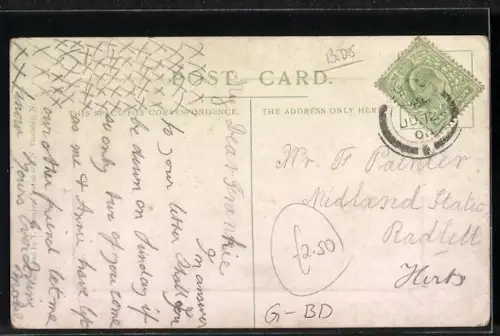 BEDS
POST CARD.
THIS SPACE FOR CORRESPONDENCE.
THE ADDRESS ONLY HERE
My Dear Frankie
In answer
to your letter Shall you
be down on Sunday if
so only two of you come
as me & Annie have left
our other friend let me
know Yours Ever
Mr. F Painter
Midland Static
Radlett
Herts
£2.50
G-BD